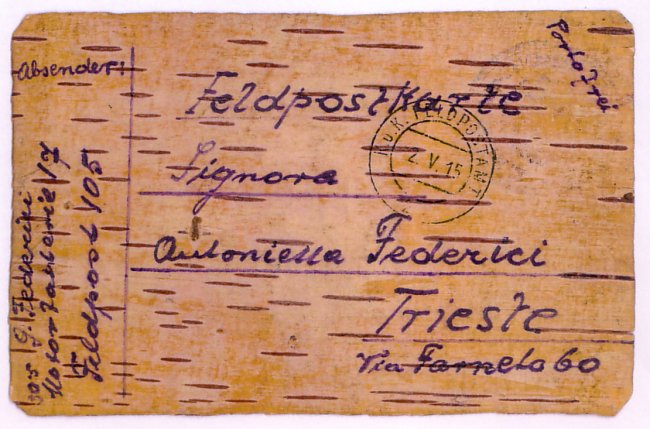 Absender:
Feldpostkarte
Portofrei
K.u.K. FELDPOSTAMT
2. V. 15
Signora
Antonietta Federici
Trieste
Via Farneto 60
G. Federici
Motorbatterie 17
Feldpost 105